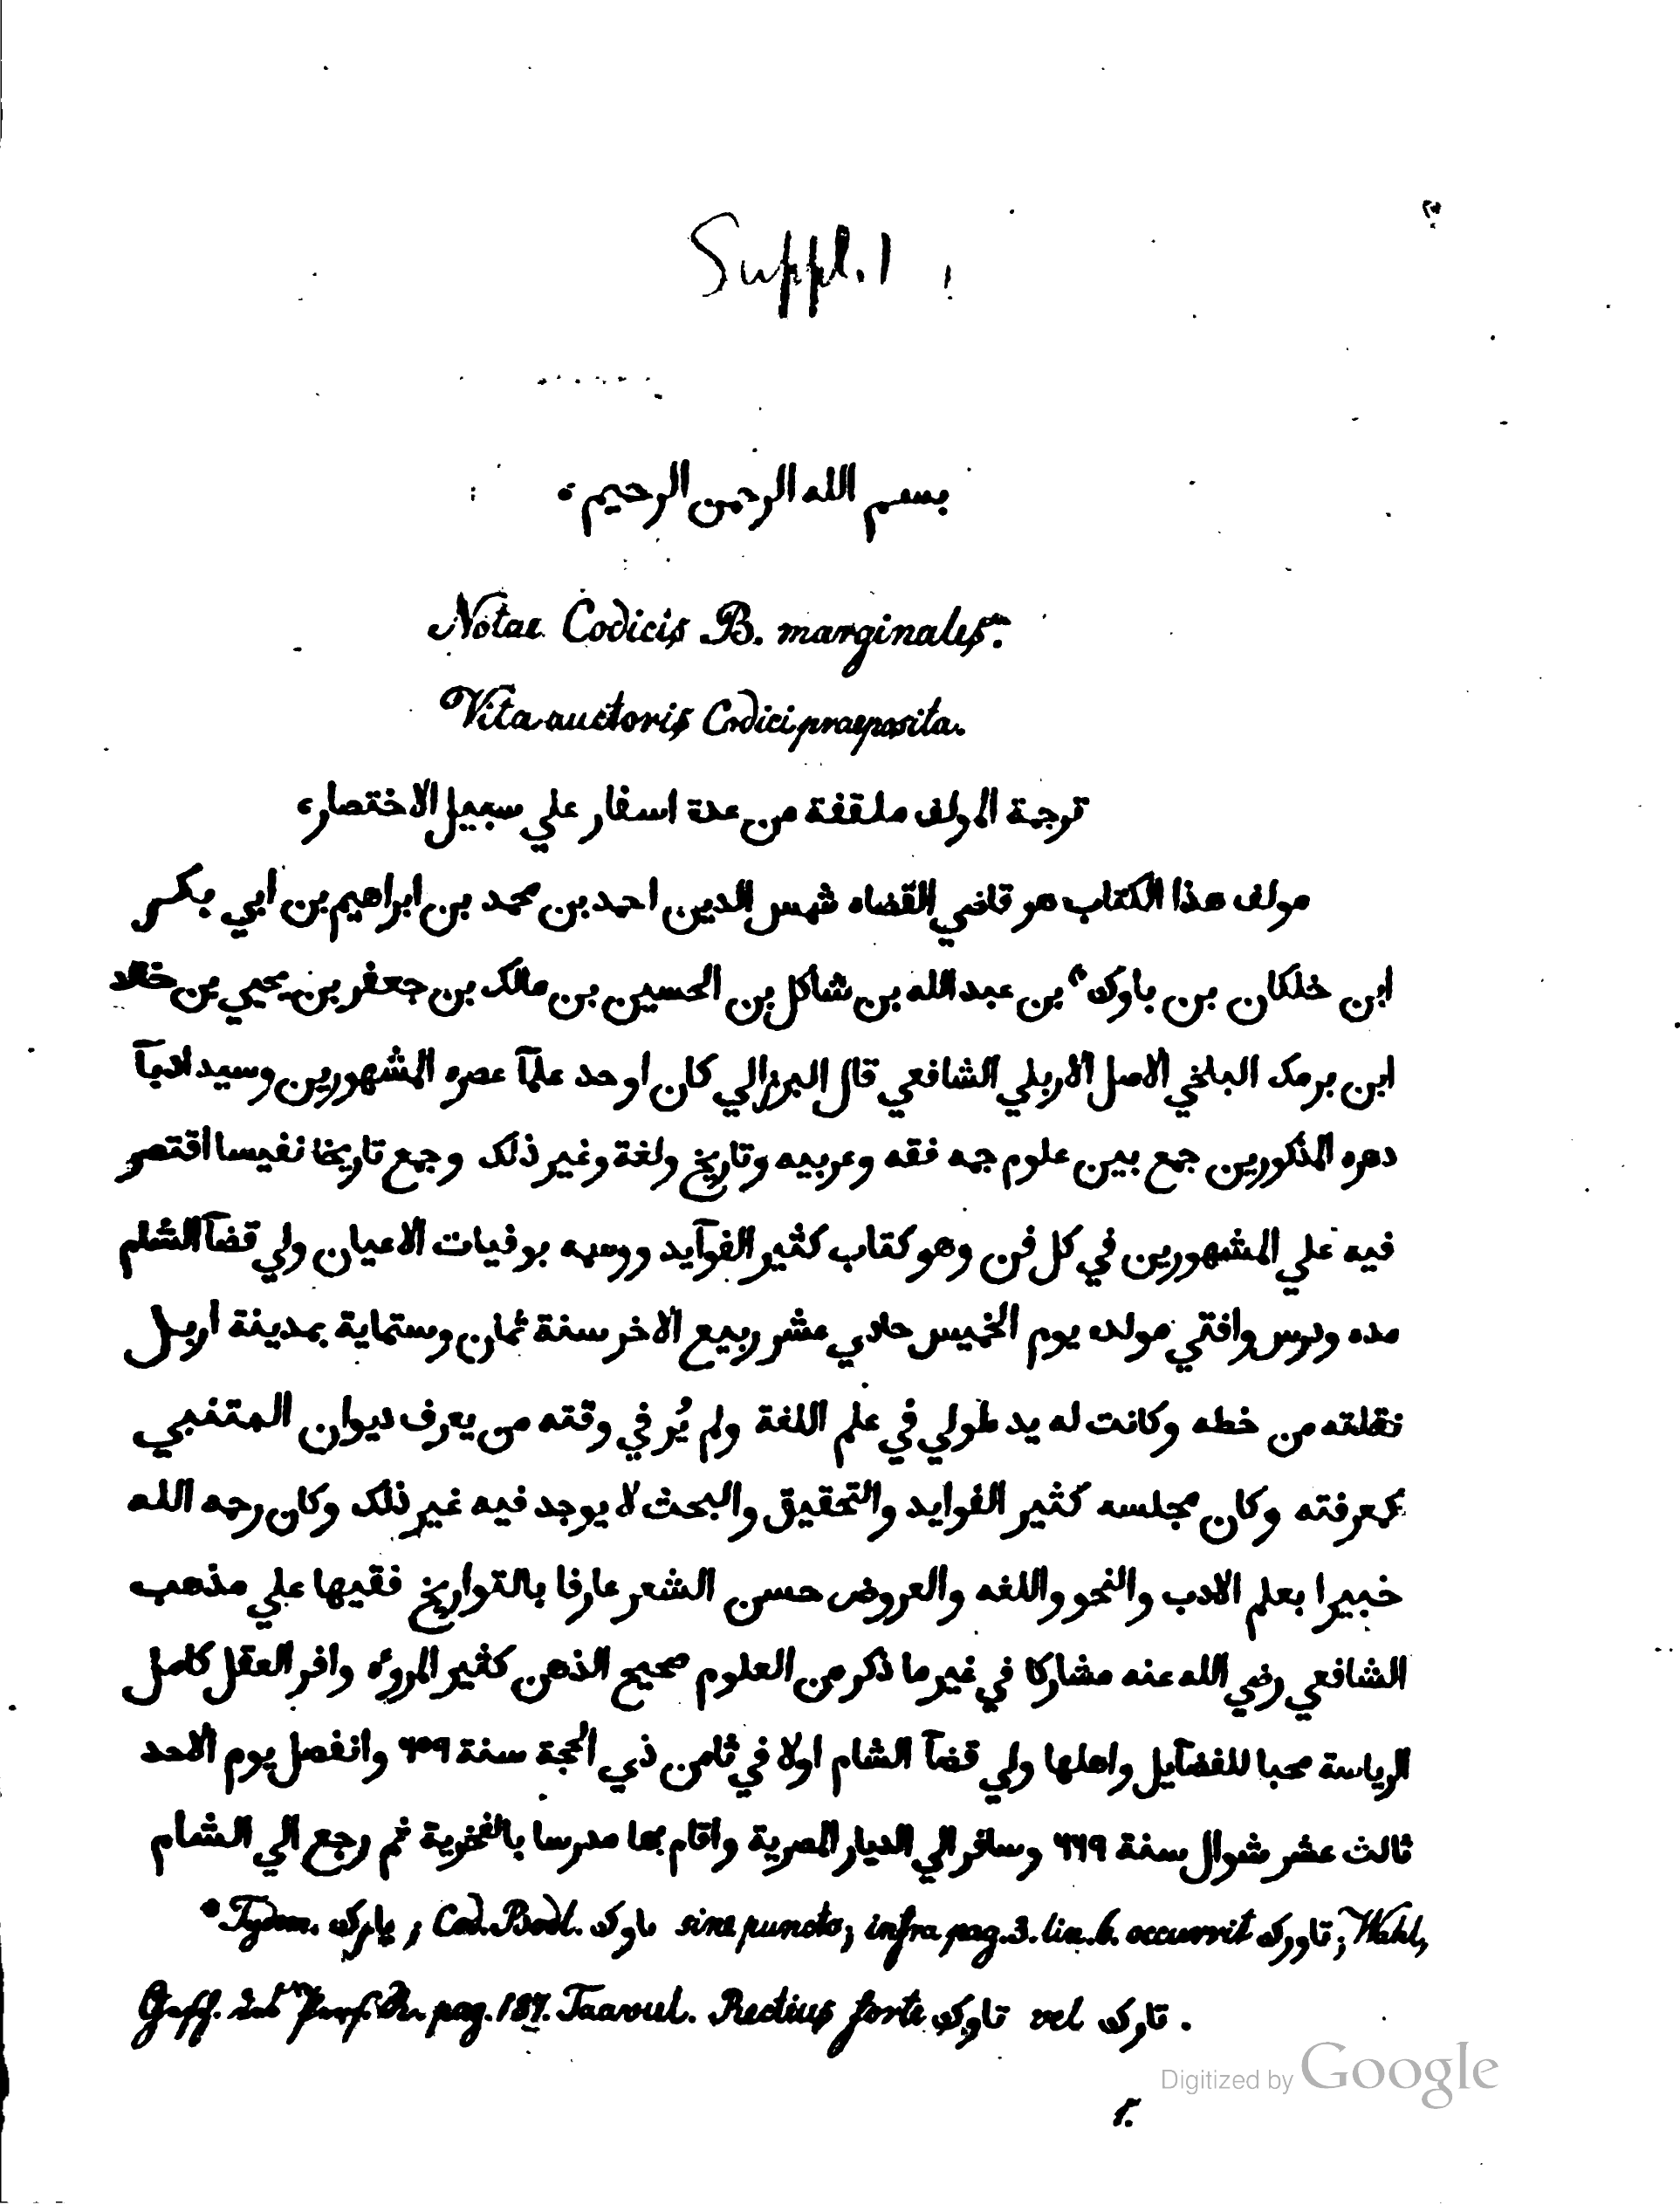 Suppl. 1
بسم الله الرحمن الرحيم ،
Notae Codicis B. marginales.
Vita auctoris Codici praeposita.
ترجمة المولف ملقفة من عدة اسفار علي سبيل الاختصار،
مولف هذا الكتاب هو قاضي القضاه شمس الدين احمد بن محمد بن ابراهيم بن ابي بكر
ابن خلكان بن باوك * بن عبد الله بن شاكل بن الحسين بن مالك بن جعفر بن يحيي بن خالد
ابن برمك البلخي الاصل الاربلي الشافعي قال البرزالي كان اوحد علمآ عصره المشهورين وسيد ادبآ
دهره المذكورين جمع بين علوم جمه فقه وعربيه وتاريخ ولغة وغير ذلك وجمع تاريخا نفيسا اقتصر
فيه علي المشهورين في كل فن وهو كتاب كثير الفوآيد ووسمه بوفيات الاعيان ولي قضآ الشام
مده ودرس وافتي مولده يوم الخميس حادي عشر ربيع الاخر سنة ثمان وستماية بمدينة اربل
نقلته من خطه وكانت له يد طولي في علم اللغة ولم يُر في وقته من يعرف ديوان المتنبي
كمعرفته وكان مجلسه كثير الفوايد والتحقيق والبحث لا يوجد فيه غير ذلك وكان رحمه الله
خبيرا بعلم الادب والنحو واللغه والعروض حسن الشعر عارفا بالتواريخ فقيها علي مذهب
الشافعي رضي الله عنه مشاركا في غير ما ذكر من العلوم صحيح الذهن كثير المروءه وافر العقل كامل
الرياسة محبا للفضآيل واهلها ولي قضآ الشام اولا في ثامن ذي الحجة سنة ٦٥٩ وانفصل يوم الاحد
ثالث عشر شوال سنة ٦٦٩ وسافر الي الديار المصرية واقام بها مدرسا بالفخرية ثم رجع الي الشام
* Tydem. يارك ; Cod. Bodl. ٮاوك sine puncto; infra pag. 3. lin. 6. occurrit تاووك ; Wahl,
pag. 187. Taavul. Rectius forte تاوك vel تارك .
Digitized by Google